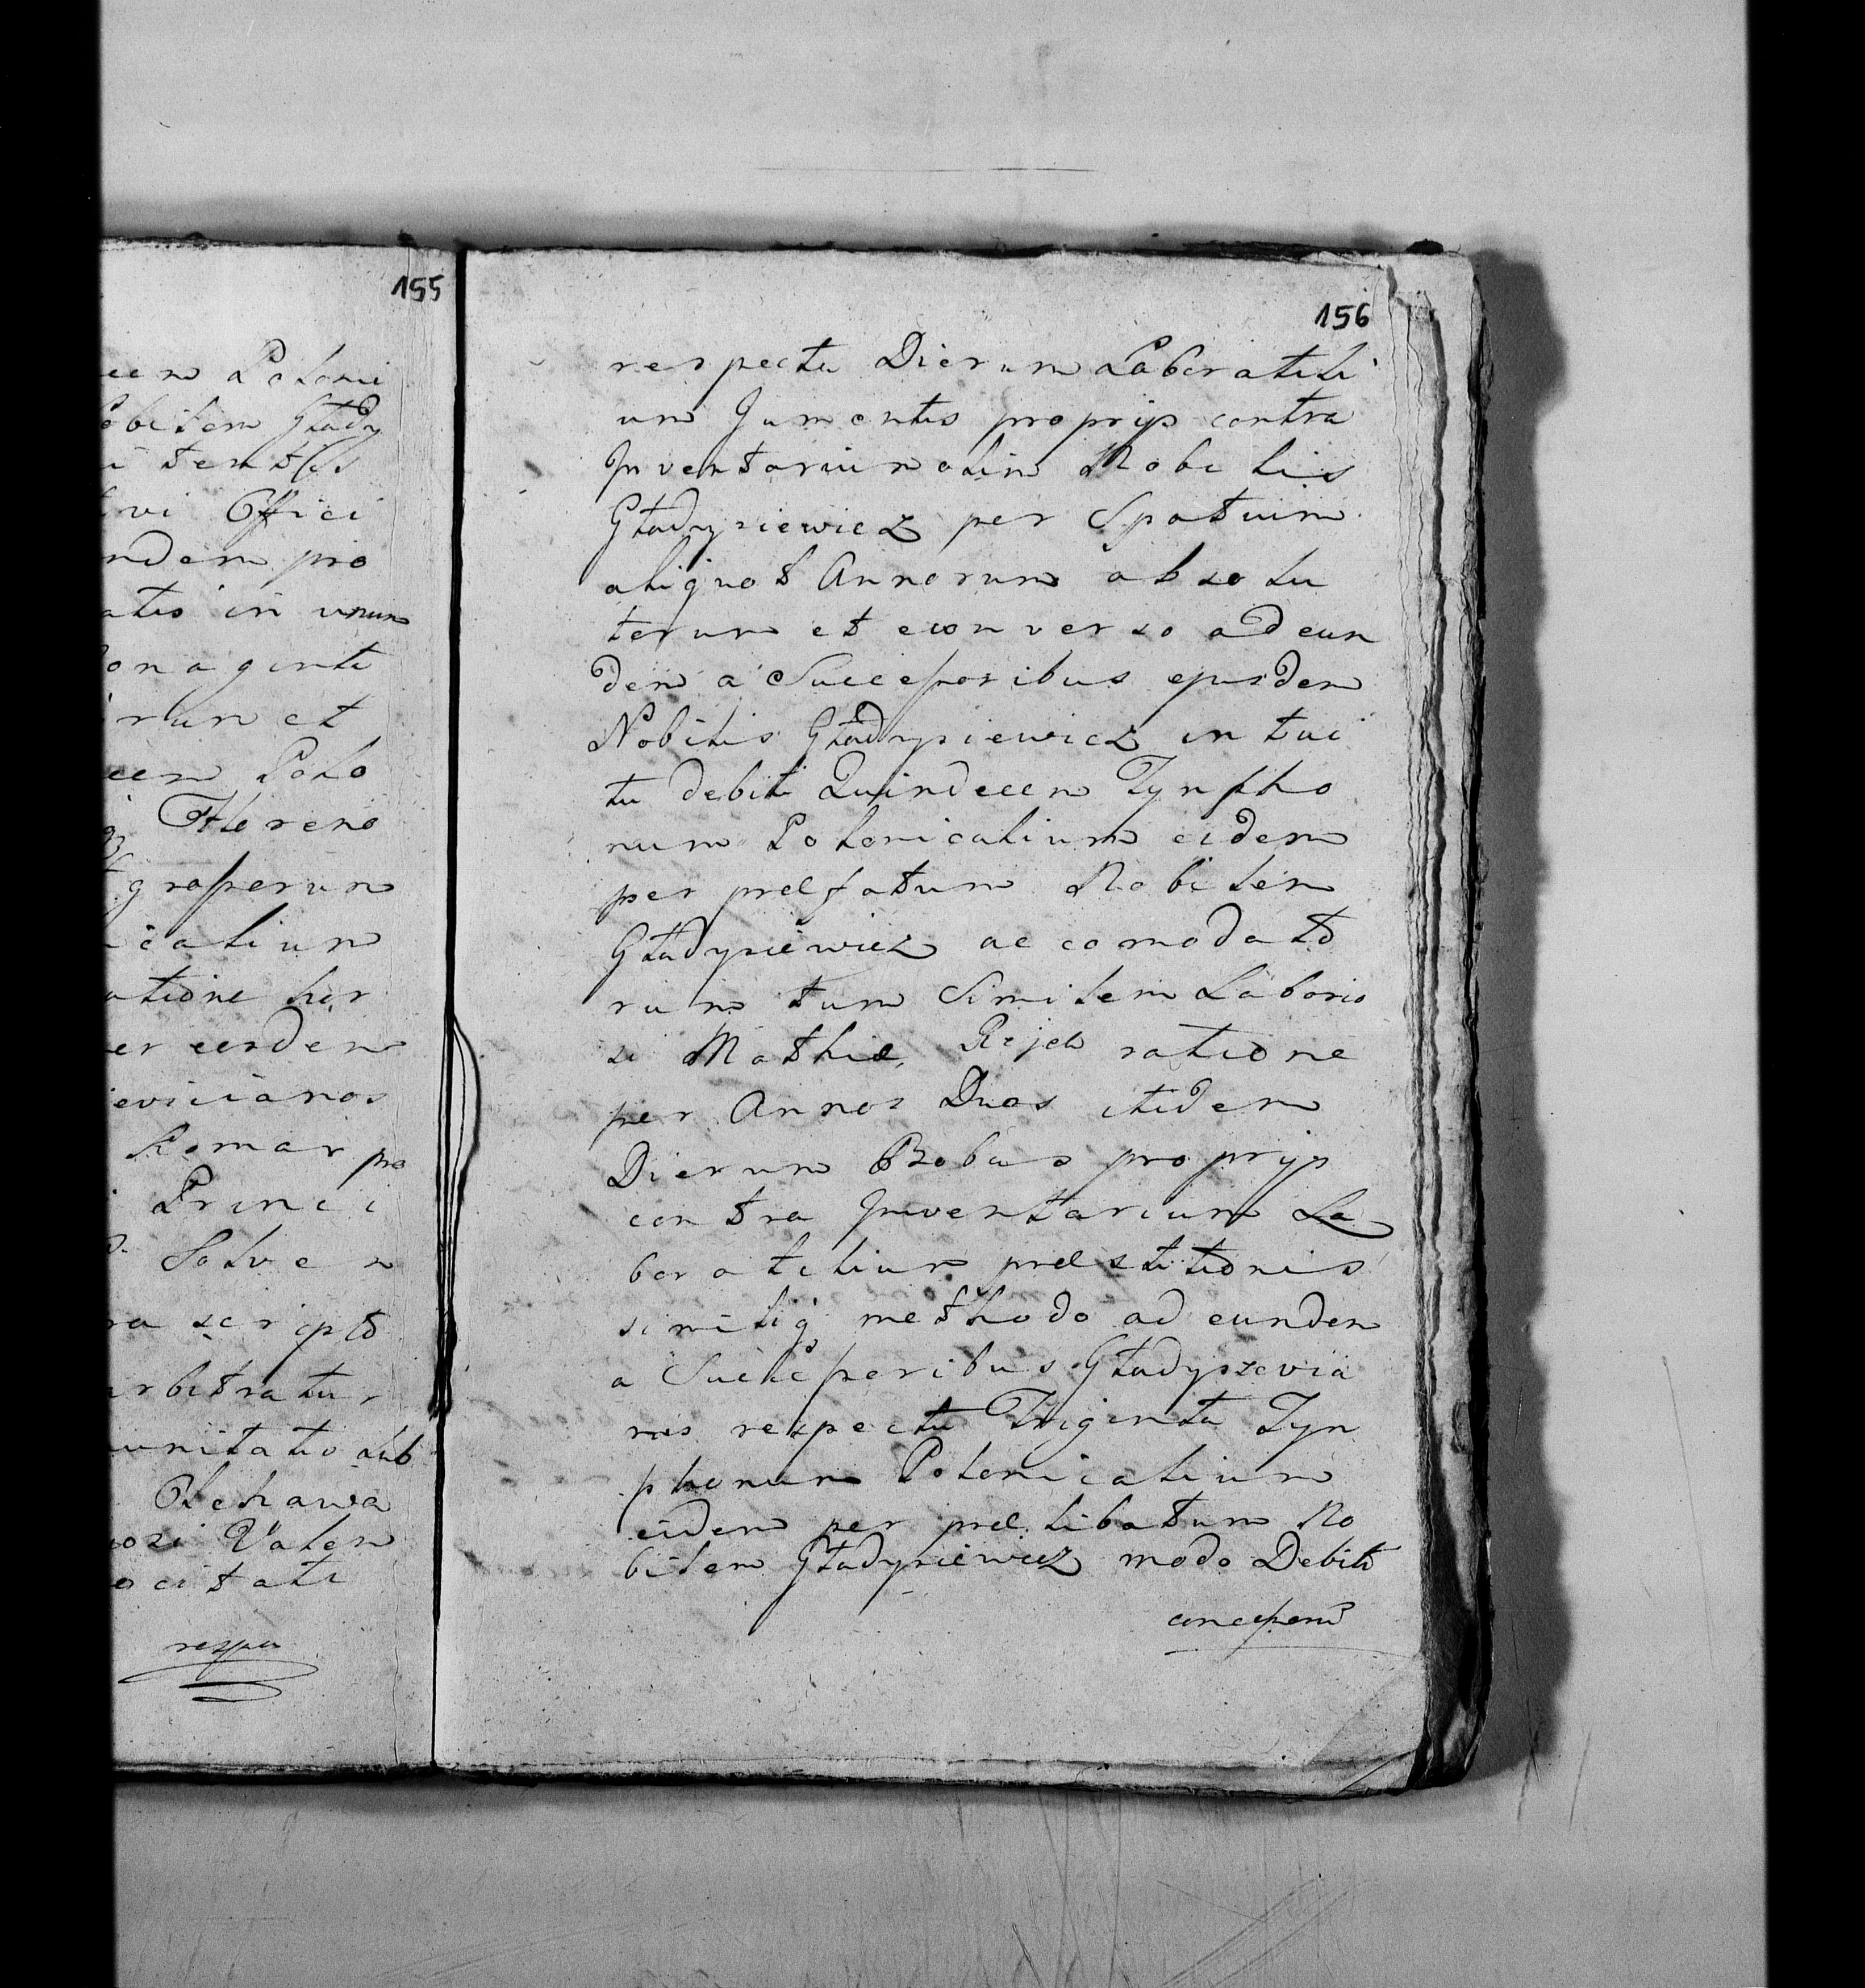 155
cem Poloni
obilem Głady
i tentus
ivi Offici
ndem pro
atis in unum
onaginti
rum et
cem Polo
Floreno
grossorum
icalium
atione hor
er eosdem
evicianos
Romar pro
Princi
Solven
ra scripto
arbitratur
unitatis sub
Olchawa
iosi Valen
ocitati
respec
156
respectu Dierum Laboratili
um Jumentis proprijs contra
Inventarium olim Nobilis
Gładysiewicz per Spatium
aliquot Annorum absolu
torum et econverso ad eun
dem a Successoribus ejusdem
Nobilis Gładysiewicz intui
tu debiti Quindecem Tynpho
num Polonicalium eidem
per præfatum Nobilem
Gładysiewicz accomodato
rum tum Similem Laborio
si Mathiæ Rejch ratione
per Annos Duos itidem
Dierum Bobus proprijs
contra Inventarium La
boratilium præstitionis
similiq methodo ad eundem
a Successoribus Gładyszevia
nis respectu Triginta Tyn
phonum Polonicalium
eidem per prælibatum No
bilem Gładysiewicz modo Debiti
concessorum